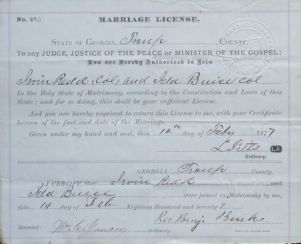 No. 87.
MARRIAGE LICENSE.
STATE OF GEORGIA, Troup COUNTY.
To any JUDGE, JUSTICE OF THE PEACE or MINISTER OF THE GOSPEL:
You are Hereby Authorized to Join
Irvin Redd, Col, and Ida Buice Col
In the Holy State of Matrimony, according to the Constitution and Laws of this
State; and for so doing, this shall be your sufficient License.
And you are hereby required to return this License to me, with your Certificate
hereon of the fact and date of the Marriage.
Given under my hand and seal, this 12th day of Feby 1877
Ordinary.
GEORGIA, Troup County.
I CERTIFY, that Irvin Redd and
Ida Buice were joined in Matrimony by me,
this 14 day of Feb Eighteen Hundred and Seventy
Rev Benj
Recorded: Ordinary.